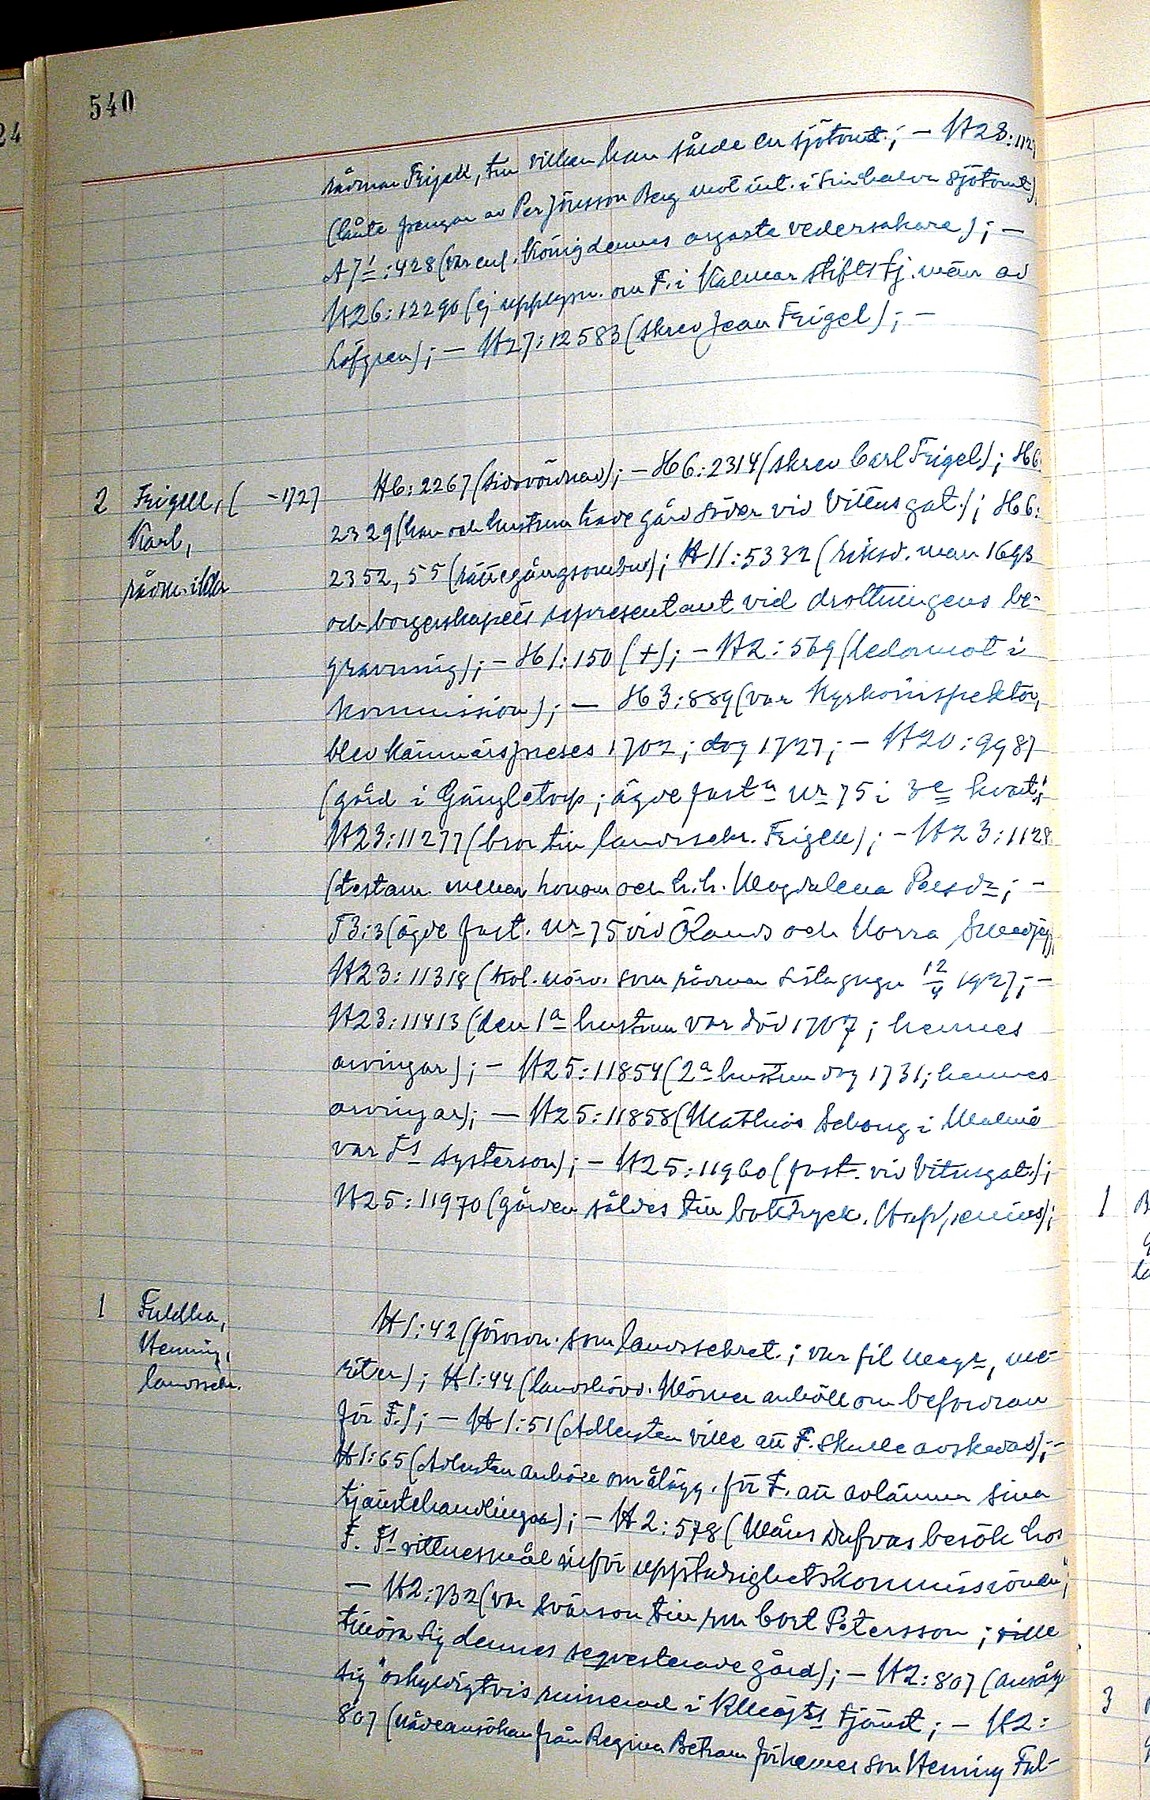 540
24
rådman Frigell, till vilken han sålde en sjötomt; – H28:112
(lånte pengar av Per Jönsson Berg mot int. i sin halva sjötomt)
A7¹:428 (var enl. König dennes argaste vedersakare); –
H26:12290 (ej upplysn. om F. i Kalmar stifts hj. män av
Löfgren); – H27:12583 (skrev Jean Frigel); –
2 Frigell, ( -1727
Karl,
rådm. i Klr
H6:2267 (sidovördnad); – H6:2314 (skrev Carl Frigel); H6:
2329 (han och hustrun hade gård söder vid Vitusgat.); H6:
2352, 55 (rättegångsombud); H11:5332 (riksd. man 1693
och borgerskapets representant vid drottningens be-
gravning); – H1:150 (+); – H2:569 (ledamot i
kommission); – H3:889 (var kyrkoinspektor,
blev kämnärspreses 1702; dog 1727; – H20:9987
(gård i Gångletorp; ägde fast. nr 75 i 3e kvart.;
H23:11277 (bror till landssekr. Frigell); – H23:1128
(testam. mellan honom och h. h. Magdalena Persdr; –
T3:3 (ägde fast. nr 75 vid Ölands och Norra
H23:11318 (kol. närv. som rådman sista gången 12/4 1727; –
H23:11413 (den 1a hustrun var död 1707; hennes
arvingar); – H25:11854 (2a hustrun dog 1731; hennes
arvingar); – H25:11858 (Mathias Schong i Malmö
var F:s systerson); – H25:11960 (fast. vid Vitusgat.);
H25:11970 (gården såldes till boktryck.
1 Fuldha,
Henning,
landssekr.
H1:42 (förordn. som landssekret.; var fil magr, me-
riter); H1:44 (landshövd. Mörner anhöll om befordran
för F.); – H1:51 (Adlersten ville att F. skulle avskedas); –
H1:65 (Adlersten anhöll om ålägg. för F. att avlämna sina
tjänstehandlingar); – H2:578 (Måns Dufvas besök hos
F. F:s vittnesmål inför uppstudsighetskommissionen;
– H2:732 (var svärson till rm Cort Petersson; ville
tillösa sig dennes sequesterade gård); – H2:807 (ansåg
sig "oskyldigtvis ruinerad i K Maj:ts tjänst; – H2:
807 (nådeansökan från Regina Betram för hennes son Henning Ful-
1
3